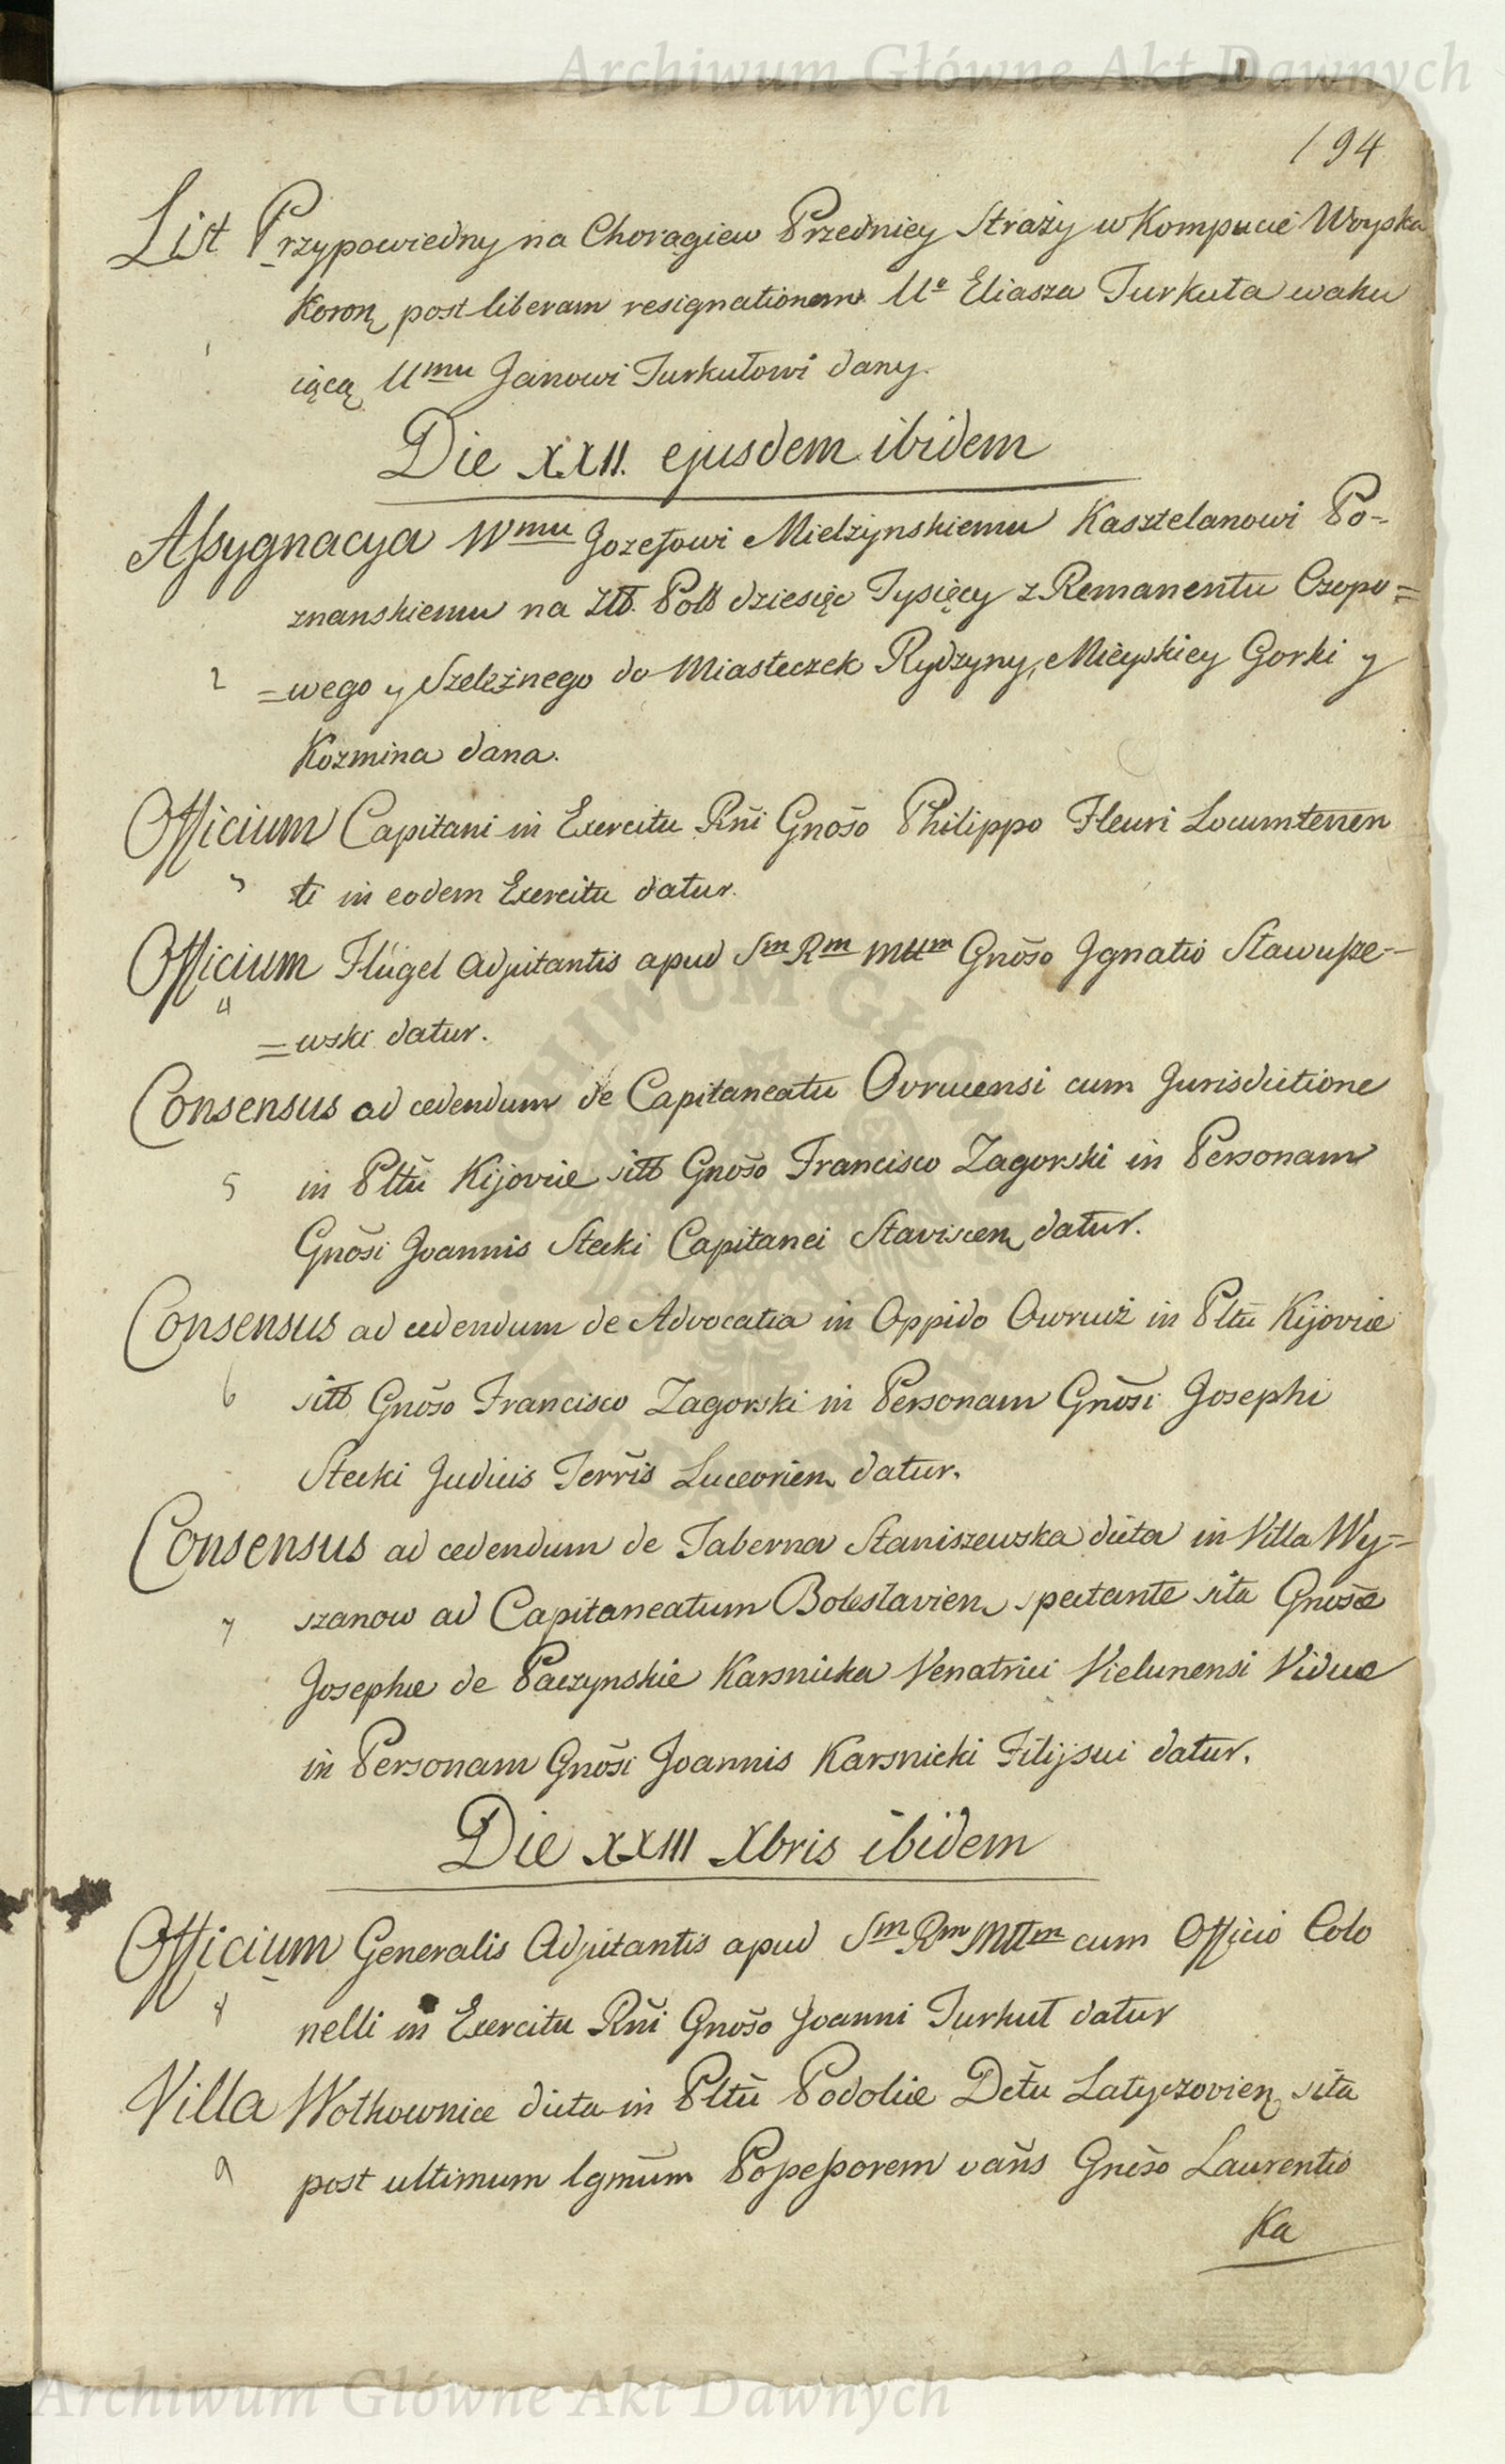 Archiwum Główne Akt Dawnych
194
List Przypowiedny na Chorągiew Przedniey Straży w Kompucie Woyska
Koron, post liberam resignationem Uo Eliasza Turkuła waku
1
iącą Umu Janowi Turkułowi dany.
Die XXII. ejusdem ibidem
Assygnacya Wmu Jozefowi Mielżynskiemu Kasztelanowi Po=
znanskiemu na Złt. Pols dziesięć Tysięcy z Remanentu Czopo=
2 =wego y Szelężnego do Miasteczek Rydzyny, Mieyskiey Gorki y
Kozmina dana.
Officium Capitani in Exercitu Rñi Gnoso Philippo Fleuri Locumtenen
3 ti in eodem Exercitu datur.
Officium Flügel Adjutantis apud Sm Rm Mttm Gnoso Ignatio Stawusze-
4
=wski datur.
Consensus ad cedendum de Capitaneatu Ovrucensi cum Jurisdictione
5 in Plttu Kijoviæ sitto Gnoso Francisco Zagorski in Personam
Gnosi Joannis Stecki Capitanei Staviscen, datur.
Consensus ad cedendum de Advocatia in Oppido Owrucz in Plttu Kijoviæ
6 sitto Gnoso Francisco Zagorski in Personam Gnosi Josephi
Stecki Judicis Terris Luceorien, datur.
Consensus ad cedendum de Taberna Staniszewska dicta in Villa Wy=
7 szanow ad Capitaneatum Boleslavien, spectante sita Gnosæ
Josephæ de Paczynskie Karsnicka Venatrici Vielunensi Viduæ
in Personam Gnosi Joannis Karsnicki Filij sui datur.
Die XXIII Xbris ibidem
Officium Generalis Adjutantis apud Sm Rm Mttm cum Officio Colo
8 nelli in Exercitu Rñi Gnoso Joanni Turkuł datur
Villa Wołkownice dicta in Plttu Podoliæ Dctu Latyczovien, sita
9 post ultimum lgmum Possessorem vans Gnoso Laurentio
Ka
Archiwum Główne Akt Dawnych